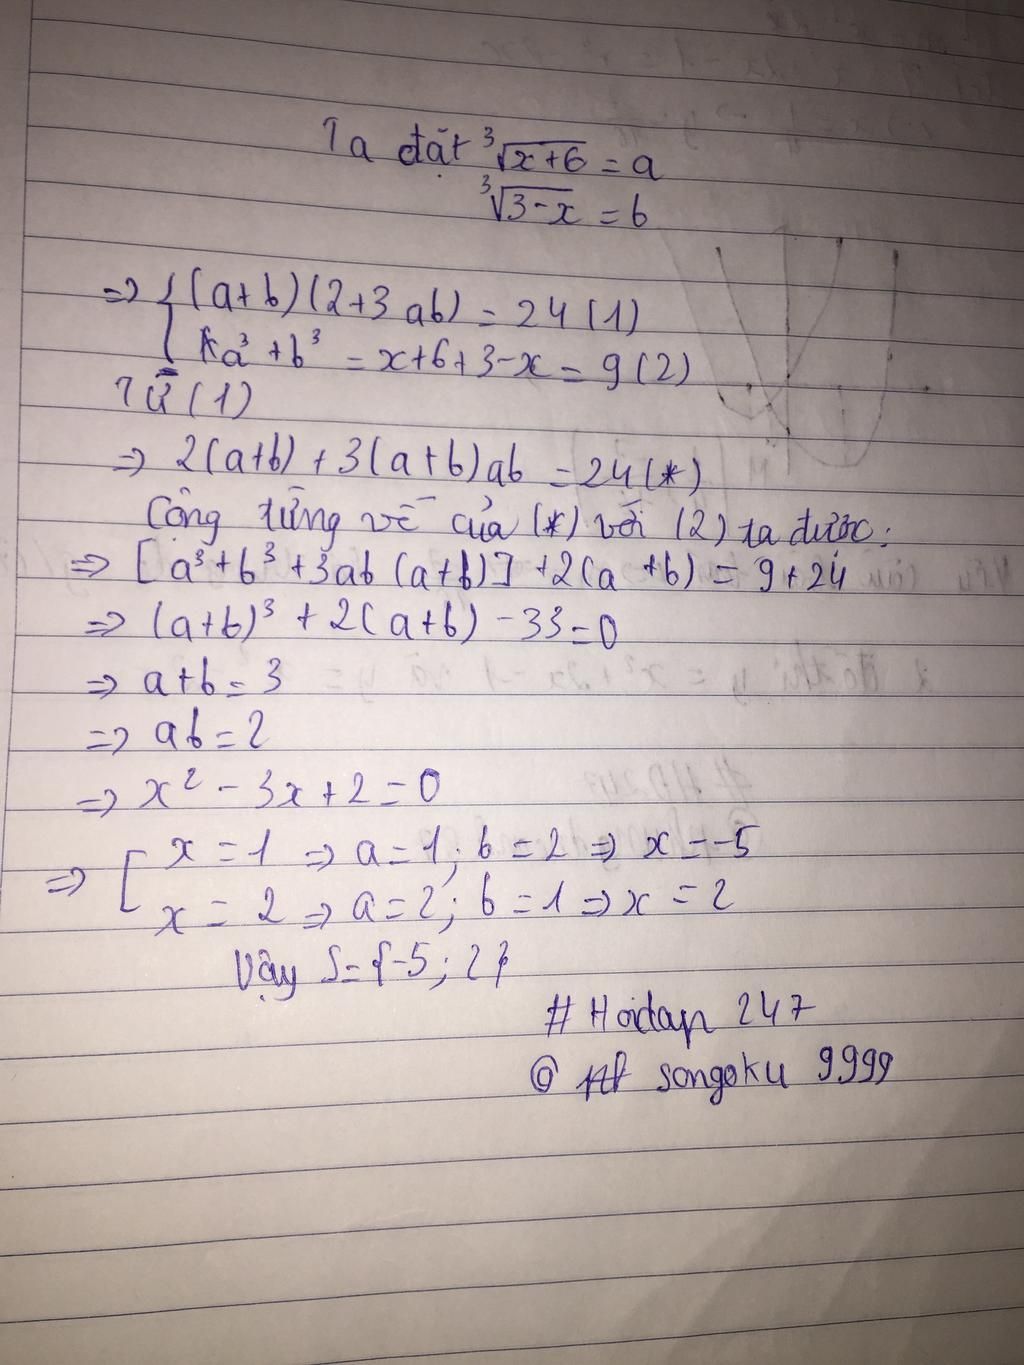 Ta đặt ³√x+6 = a
³√3-x = b
=> { (a+b)(2+3ab) = 24 (1)
a³ + b³ = x+6+3-x = 9 (2)
Từ (1)
=> 2(a+b) + 3(a+b)ab = 24 (*)
Cộng từng vế của (*) với (2) ta được:
=> [a³+b³+3ab(a+b)] + 2(a+b) = 9+24
=> (a+b)³ + 2(a+b) - 33 = 0
=> a+b = 3
=> ab = 2
=> x² - 3x + 2 = 0
=> [ x = 1 => a = 1; b = 2 => x = -5
x = 2 => a = 2; b = 1 => x = 2
Vậy S = {-5; 2}
# Hoidap 247
@ songoku 9999